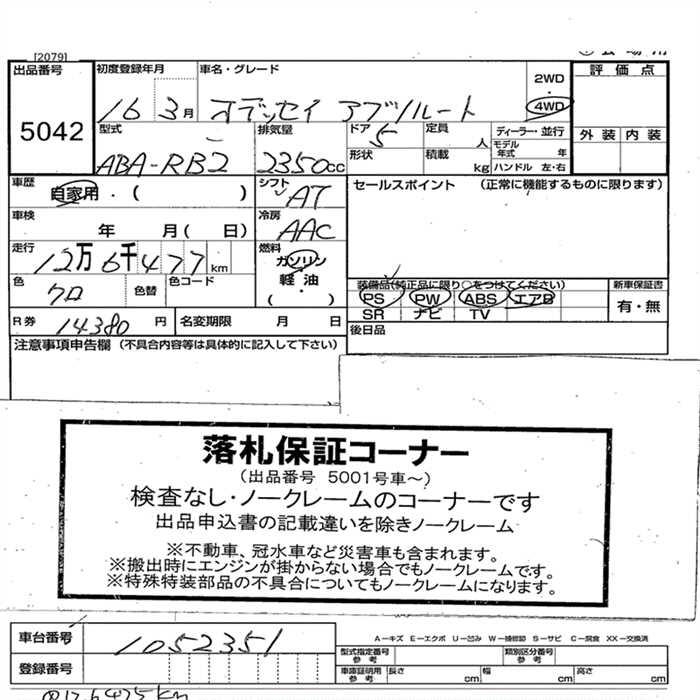 [2079]
出品番号 初度登録年月 車名・グレード 2WD・4WD 評価点
5042 16 3月 オデッセイ アブソルート
型式 排気量 ドア 定員 人 ディーラー・並行 外装 内装
ABA-RB2 2350cc 5 形状 積載 kg モデル年式 年 ハンドル 左・右
車歴 自家用・( ) シフト AT セールスポイント (正常に機能するものに限ります)
車検 年 月( 日) 冷房 AAC
走行 12万6千477km 燃料 ガソリン・軽油・( )
色 クロ 色替 色コード
装備品(純正品に限り○をつけてください) 新車保証書
PS PW ABS エアB 有・無
SR ナビ TV
R券 14380円 名変期限 月 日 後日品
注意事項申告欄 (不具合内容等は具体的に記入して下さい)
落札保証コーナー
(出品番号 5001号車～)
検査なし・ノークレームのコーナーです
出品申込書の記載違いを除きノークレーム
※不動車、冠水車など災害車も含まれます。
※搬出時にエンジンが掛からない場合でもノークレームです。
※特殊特装部品の不具合についてもノークレームになります。
A－キズ E－エクボ U－凹み W－補修跡 S－サビ C－腐食 XX－交換済
車台番号 1052351 型式指定番号 参考 類別区分番号 参考
登録番号 車庫証明用 参考 長さ cm 幅 cm 高さ cm